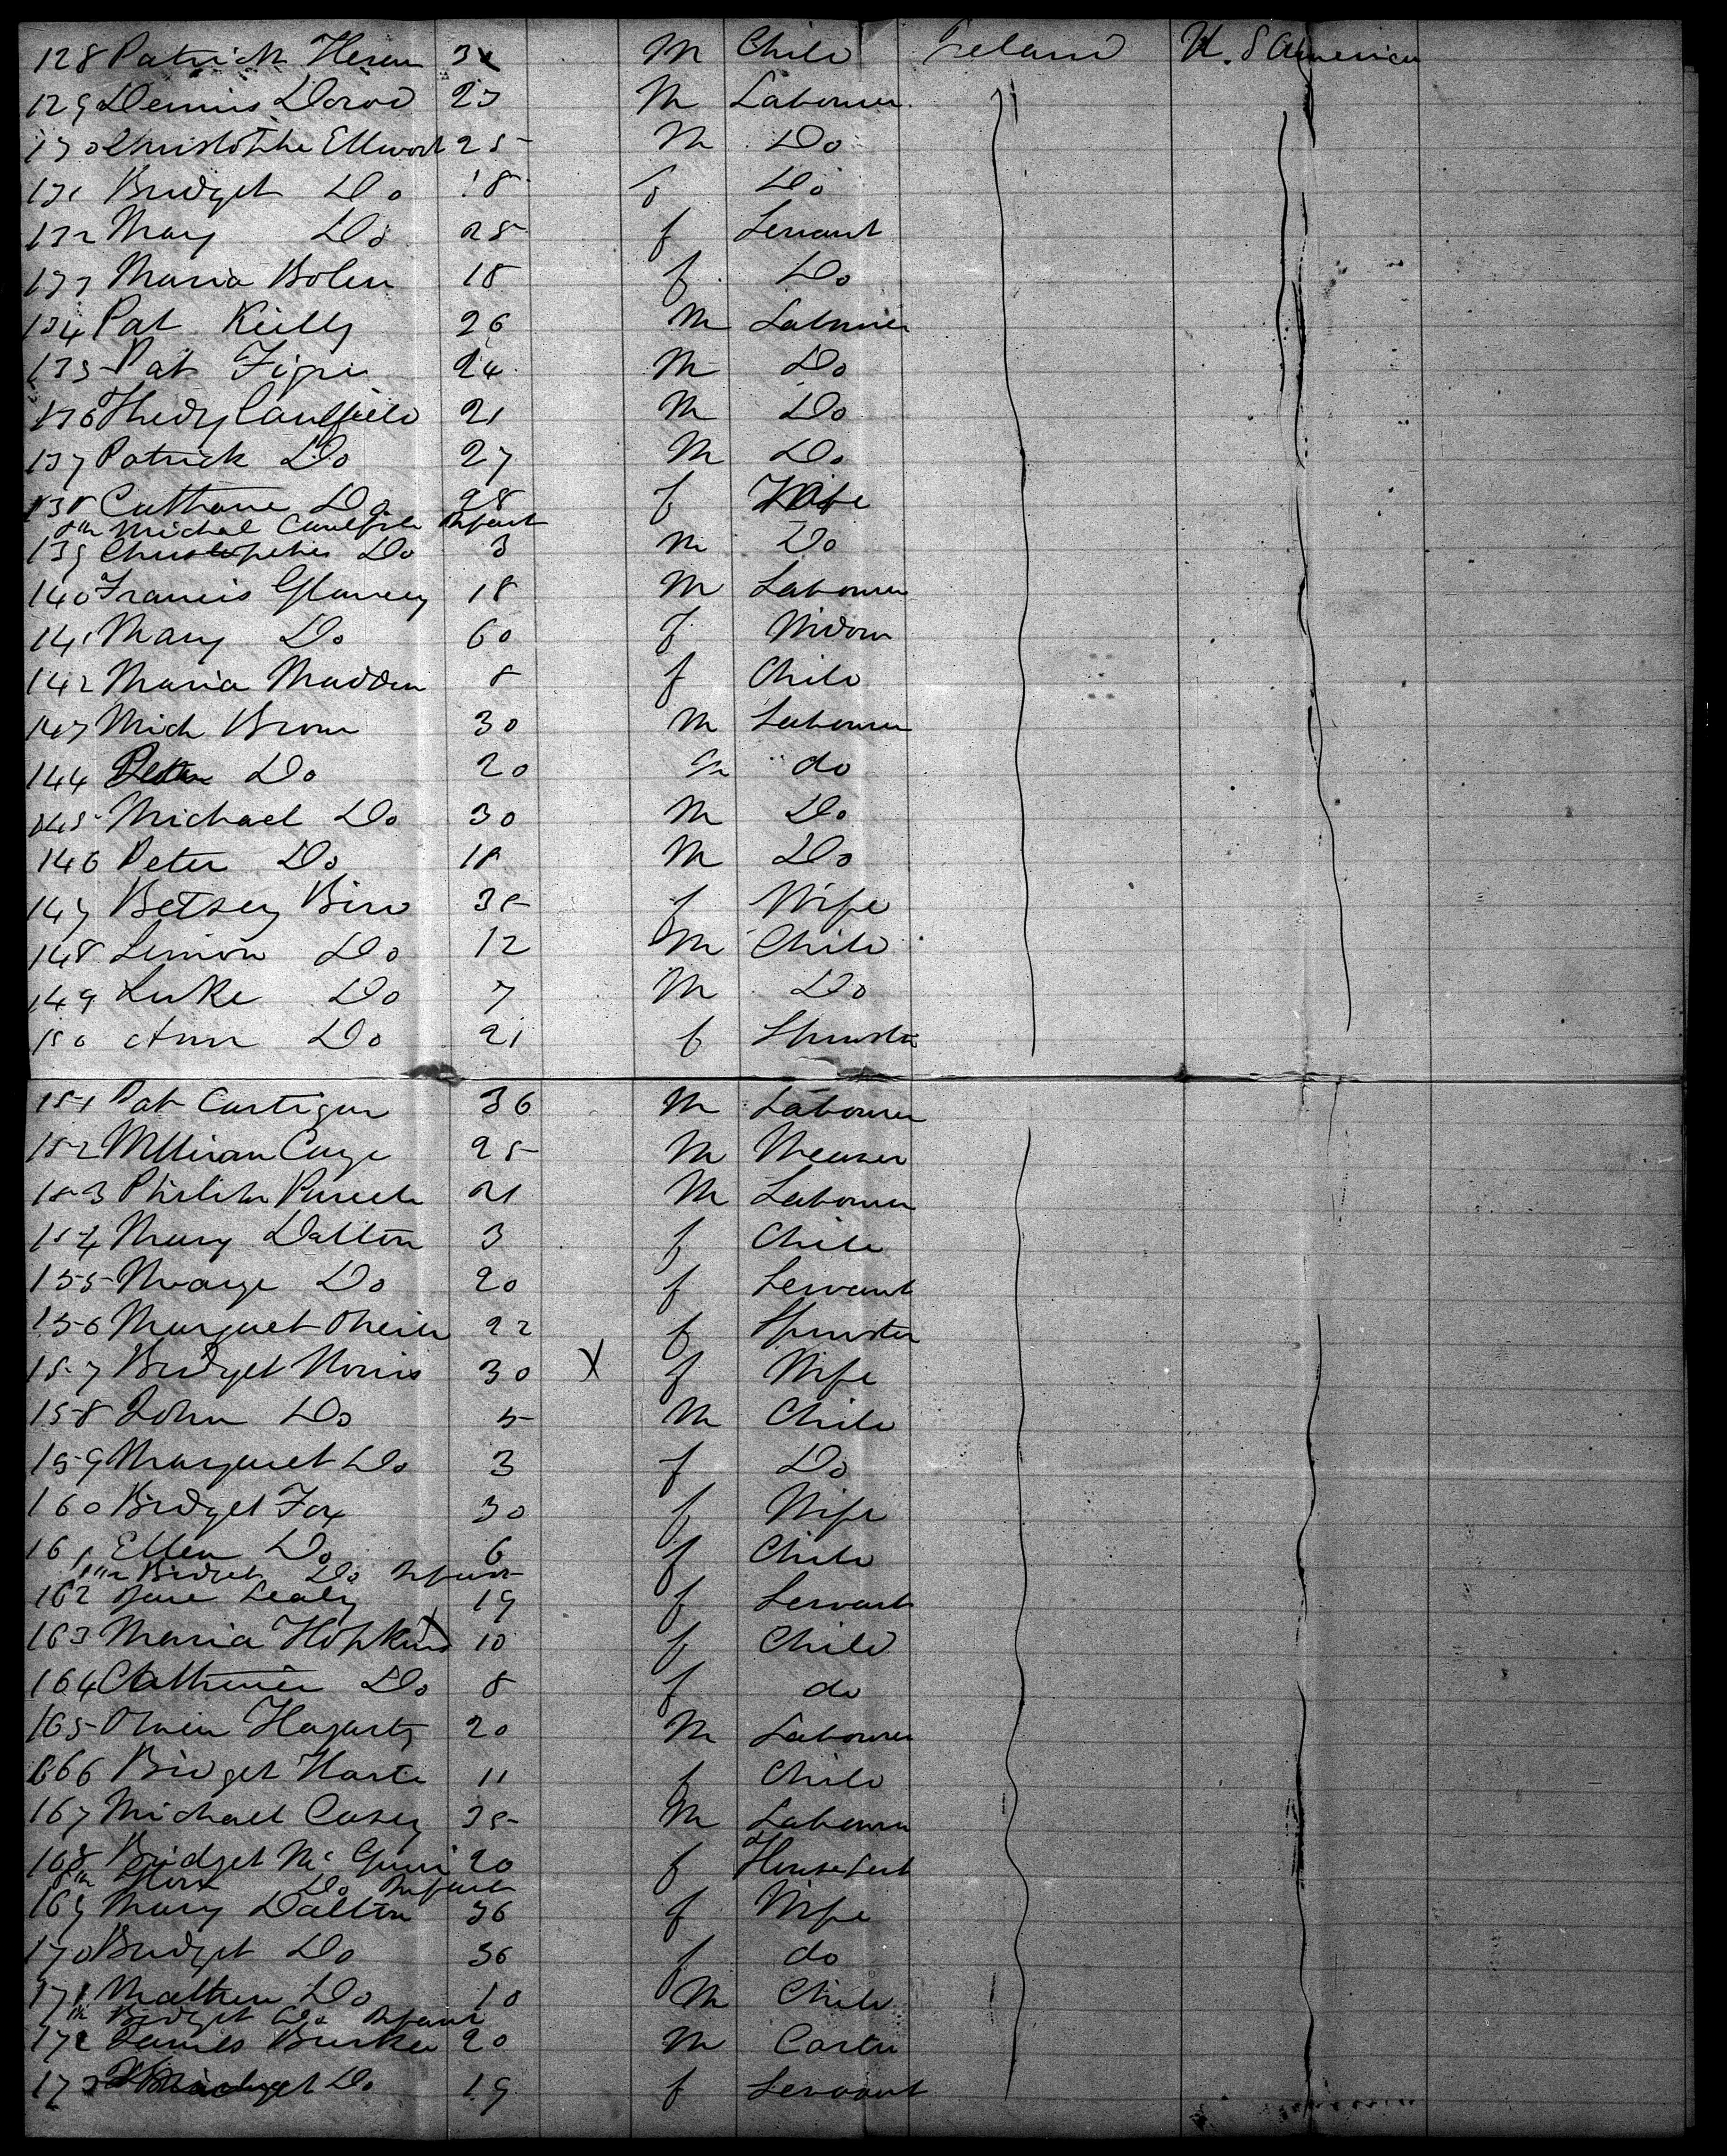 128 Patrick Heran 3 M Child Ireland U. S America
129 Dennis 23 M Labourer
130 Ellword 25 M Do
131 Bridget Do 18 f Do
132 Mary Do 25 f Servant
133 Maria Bolen 18 f Do
134 Pat Kielly 26 M Labourer
135 Pat 24 M Do
136 Caulfield 21 M Do
137 Patrick Do 27 M Do
138 Do 28 f Wife
Michal Caulfield Infant
139 Do 3 M Do
140 Francis Glavey 18 M Labourer
141 Mary Do 60 f Widow
142 Maria Madden 8 f Child
143 Mich Brown 30 M Labourer
144 Do 20 m do
145 Michael Do 30 M Do
146 Peter Do 18 M Do
147 Betsey 35 f Wife
148 Do 12 M Child
149 Luke Do 7 M Do
150 Ann Do 21 f Spinster
151 Pat Cartigan 36 M Labourer
152 25 M Weaver
153 21 M Labourer
154 Mary Dalton 3 f Child
155 Do 20 f Servant
156 Margaret Oneill 22 f Spinster
157 Bridget Norris 30 X f Wife
158 John Do 5 M Child
159 Margaret Do 3 f Do
160 Bridget Fox 30 f Wife
161 Ellen Do 6 f Child
Bridget Do Infant
162 Jane Lealy 19 f Servant
163 Maria Hopkins 10 f Child
164 Do 8 f do
165 Owen Hagarty 20 M Labourer
166 Bridget Harte 11 f Child
167 Michael Casey 35 M Labourer
168 Bridget 20 f
Do Infant
169 Mary Dalton 36 f Wife
170 Bridget Do 36 f do
171 Mathew Do 10 M Child
Bridget Do Infant
172 James Burke 20 M
173 Do 19 f Servant